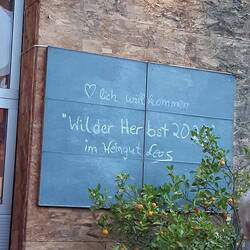 ♡lich willkommen
"Wilder Herbst 20
im Weingut